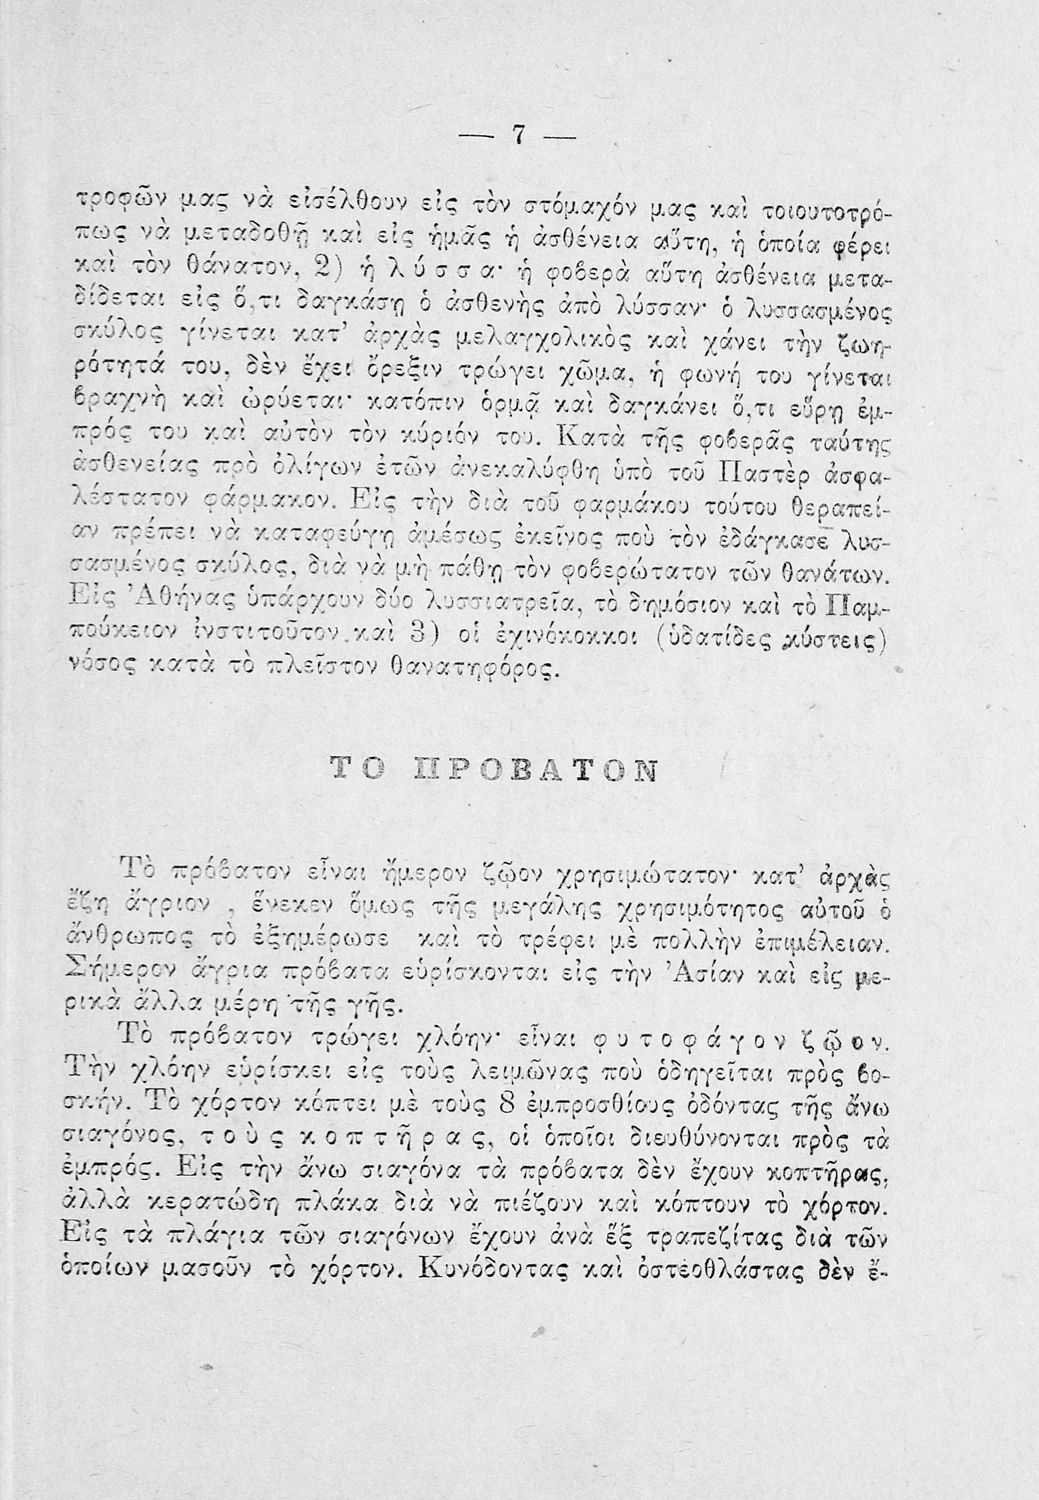 — 7 —
τροφῶν μας νὰ εἰσέλθουν εἰς τὸν στόμαχόν μας καὶ τοιουτοτρό-
πως νὰ μεταδοθῇ καὶ εἰς ἡμᾶς ἡ ἀσθένεια αὕτη, ἡ ὁποία φέρει
καὶ τὸν θάνατον, 2) ἡ λ ύ σ σ α· ἡ φοβερὰ αὕτη ἀσθένεια μετα-
δίδεται εἰς ὅ,τι δαγκάσῃ ὁ ἀσθενὴς ἀπὸ λύσσαν· ὁ λυσσασμένος
σκύλος γίνεται κατ’ ἀρχὰς μελαγχολικὸς καὶ χάνει τὴν ζωη-
ρότητά του, δὲν ἔχει ὄρεξιν τρώγει χῶμα, ἡ φωνή του γίνεται
βραχνὴ καὶ ὠρύεται· κατόπιν ὁρμᾷ καὶ δαγκάνει ὅ,τι εὕρῃ ἐμ-
πρός του καὶ αὐτὸν τὸν κύριόν του. Κατὰ τῆς φοβερᾶς ταύτης
ἀσθενείας πρὸ ὀλίγων ἐτῶν ἀνεκαλύφθη ὑπὸ τοῦ Παστὲρ ἀσφα-
λέστατον φάρμακον. Εἰς τὴν διὰ τοῦ φαρμάκου τούτου θεραπεί-
αν πρέπει νὰ καταφεύγῃ ἀμέσως ἐκεῖνος ποὺ τὸν ἐδάγκασε λυσ-
σασμένος σκύλος, διὰ νὰ μὴ πάθῃ τὸν φοβερώτατον τῶν θανάτων.
Εἰς Ἀθήνας ὑπάρχουν δύο λυσσιατρεῖα, τὸ δημόσιον καὶ τὸ Παμ-
πούκειον ἰνστιτοῦτον. καὶ 3) οἱ ἐχινόκοκκοι (ὑδατίδες κύστεις)
νόσος κατὰ τὸ πλεῖστον θανατηφόρος.
ΤΟ ΠΡΟΒΑΤΟΝ
Τὸ πρόβατον εἶναι ἥμερον ζῷον χρησιμώτατον· κατ’ ἀρχὰς
ἔζη ἄγριον , ἕνεκεν ὅμως τῆς μεγάλης χρησιμότητος αὐτοῦ ὁ
ἄνθρωπος τὸ ἐξημέρωσε καὶ τὸ τρέφει μὲ πολλὴν ἐπιμέλειαν.
Σήμερον ἄγρια πρόβατα εὑρίσκονται εἰς τὴν Ἀσίαν καὶ εἰς με-
ρικὰ ἄλλα μέρη τῆς γῆς.
Τὸ πρόβατον τρώγει χλόην· εἶναι φ υ τ ο φ ά γ ο ν ζ ῷ ο ν.
Τὴν χλόην εὑρίσκει εἰς τοὺς λειμῶνας ποὺ ὁδηγεῖται πρὸς βο-
σκήν. Τὸ χόρτον κόπτει μὲ τοὺς 8 ἐμπροσθίους ὀδόντας τῆς ἄνω
σιαγόνος, τ ο ὺ ς κ ο π τ ῆ ρ α ς, οἱ ὁποῖοι διευθύνονται πρὸς τὰ
ἐμπρός. Εἰς τὴν ἄνω σιαγόνα τὰ πρόβατα δὲν ἔχουν κοπτῆρας,
ἀλλὰ κερατώδη πλάκα διὰ νὰ πιέζουν καὶ κόπτουν τὸ χόρτον.
Εἰς τὰ πλάγια τῶν σιαγόνων ἔχουν ἀνὰ ἓξ τραπεζίτας διὰ τῶν
ὁποίων μασοῦν τὸ χόρτον. Κυνόδοντας καὶ ὀστεοθλάστας δὲν ἔ-